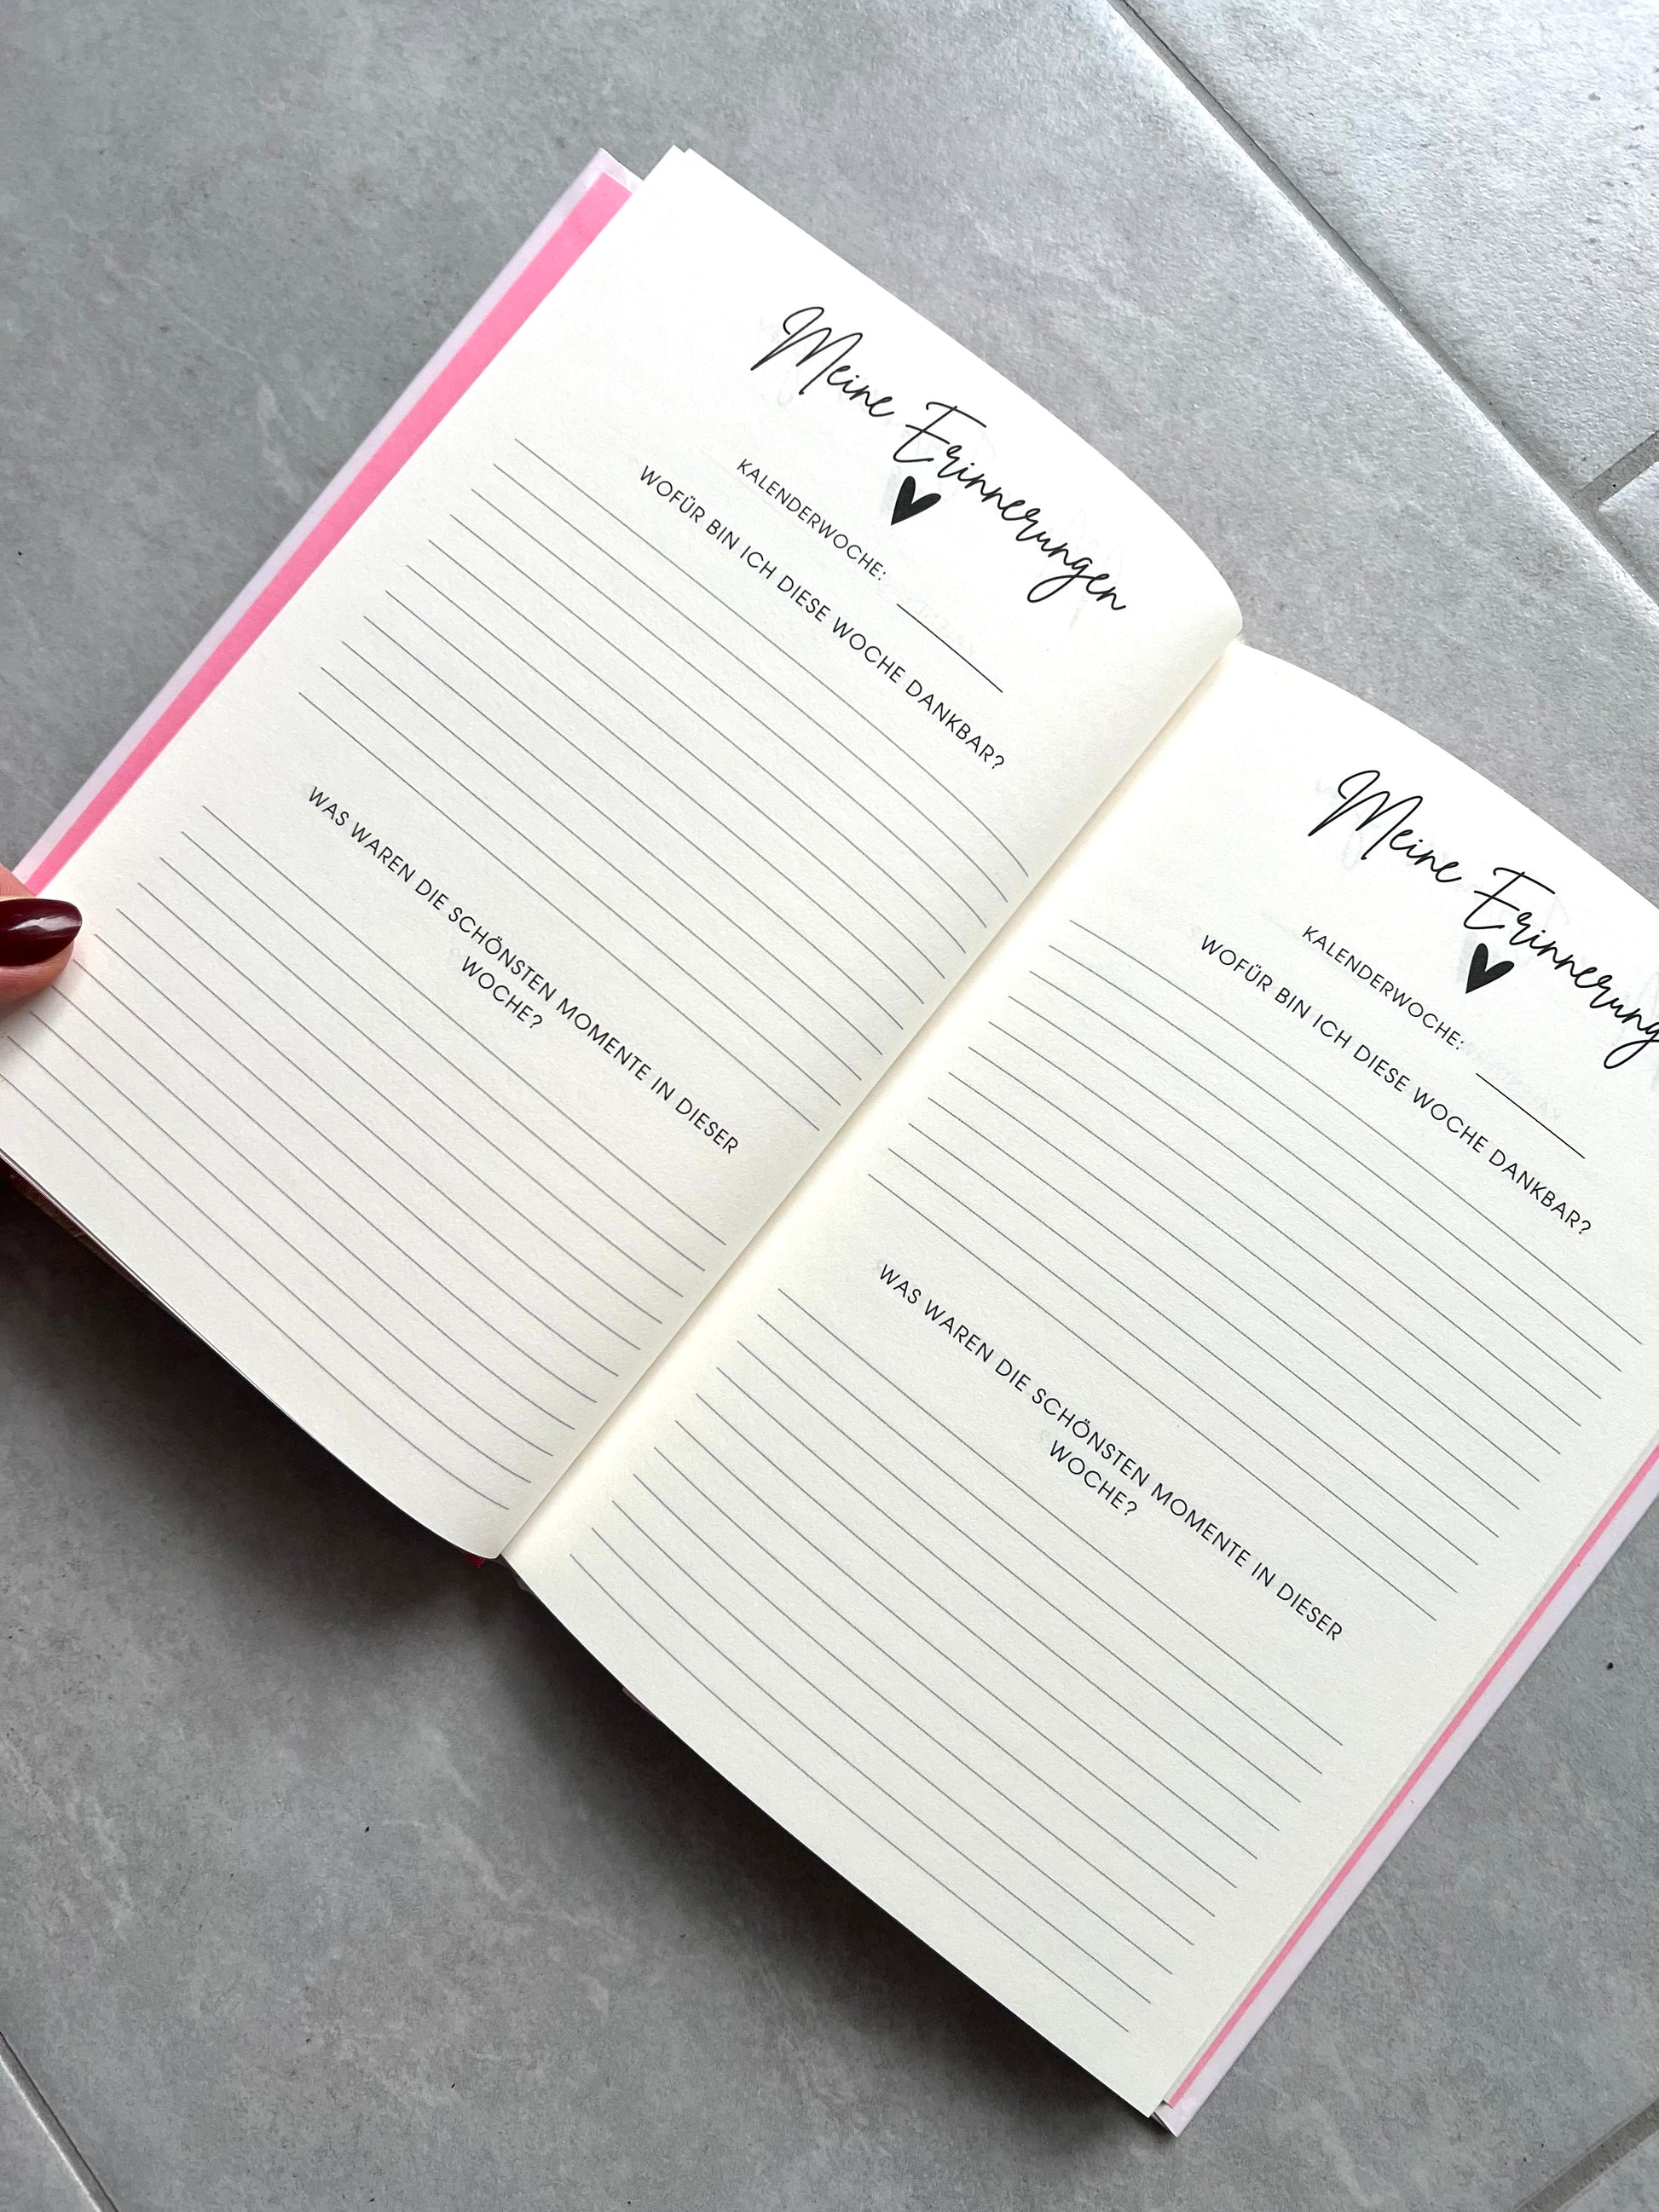 Meine Erinnerungen
KALENDERWOCHE:
WOFÜR BIN ICH DIESE WOCHE DANKBAR?
WAS WAREN DIE SCHÖNSTEN MOMENTE IN DIESER
WOCHE?
Meine Erinnerung
KALENDERWOCHE:
WOFÜR BIN ICH DIESE WOCHE DANKBAR?
WAS WAREN DIE SCHÖNSTEN MOMENTE IN DIESER
WOCHE?